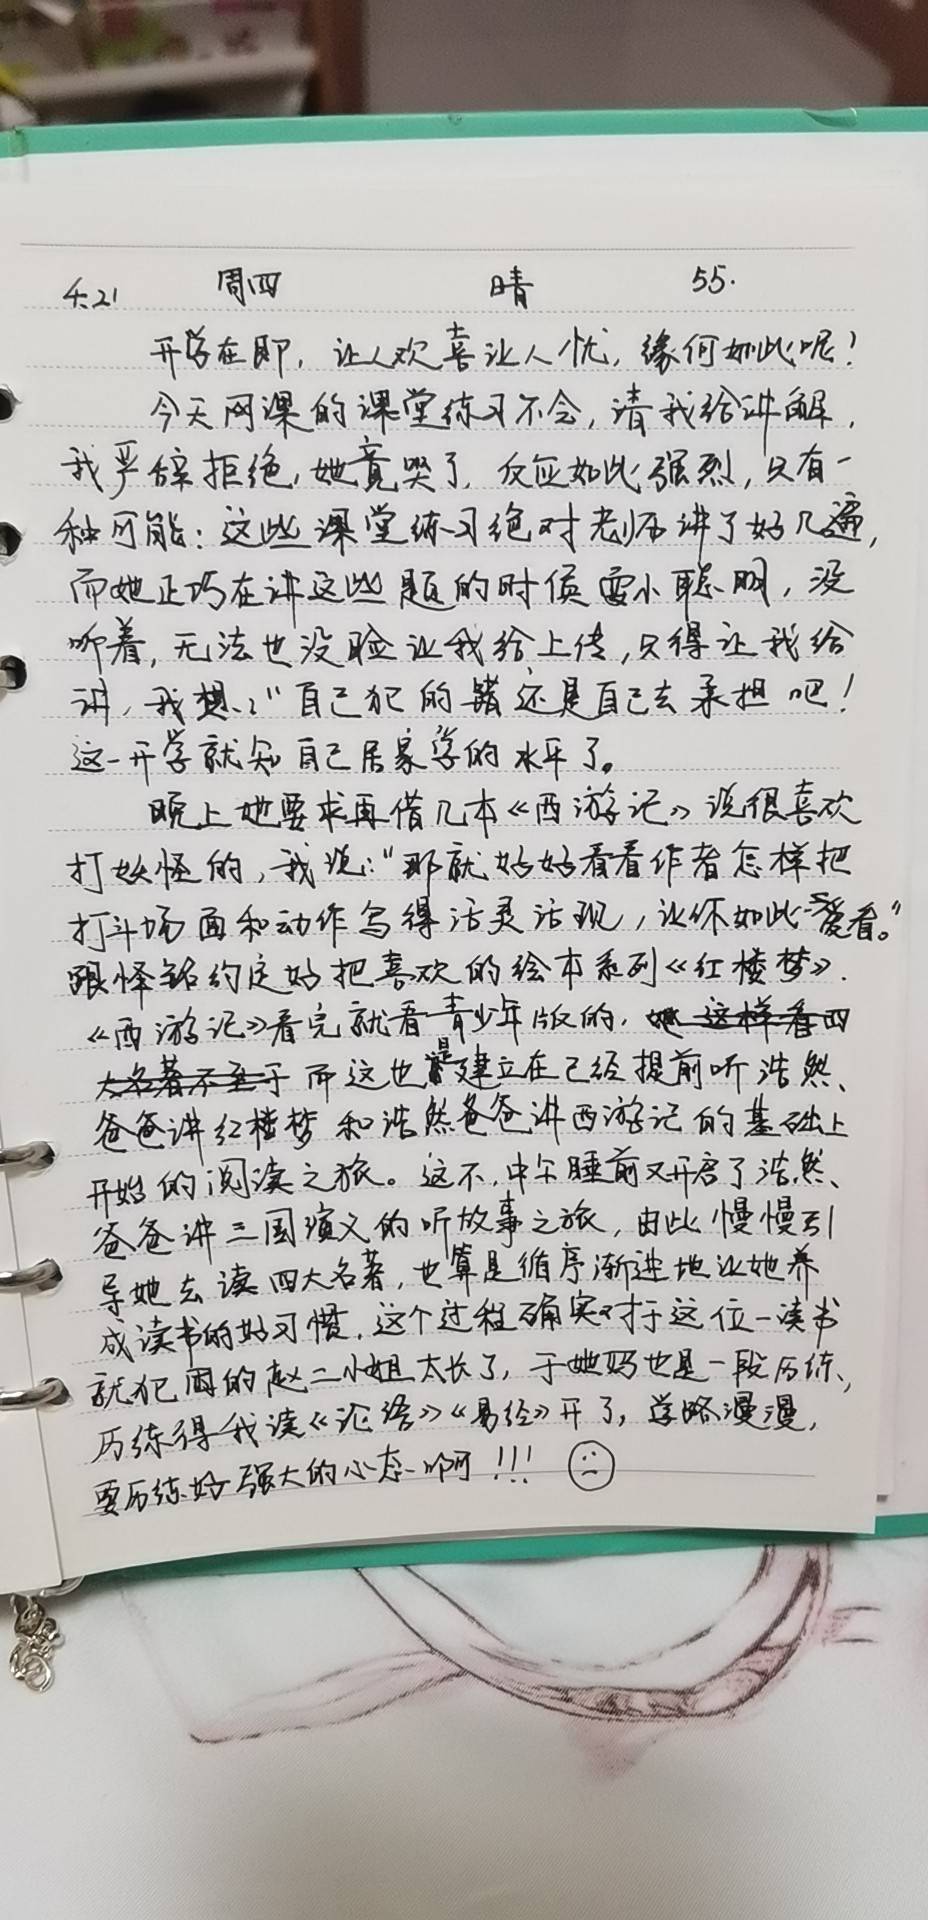 4.21 周四 晴 55.
开学在即，让人欢喜让人忧，缘何如此呢！
今天网课的课堂练习不会，请我给讲解，
我严辞拒绝，她竟哭了，反应如此强烈，只有一
种可能：这些课堂练习绝对老师讲了好几遍，
而她正巧在讲这些题的时候耍小聪明，没
听着，无法也没脸让我给上传，只得让我给
讲，我想：“自己犯的错还是自己去承担吧！
这一开学就知自己居家学的水平了。
晚上她要求再借几本《西游记》说很喜欢
打妖怪的，我说：“那就好好看看作者怎样把
打斗场面和动作写得活灵活现，让你如此爱看。”
跟怿铭约定好把喜欢的绘本系列《红楼梦》.
《西游记》看完就看青少年版的，她这样看四
大名著不至于而这也是建立在已经提前听浩然、
爸爸讲红楼梦和浩然爸爸讲西游记的基础上
开始的阅读之旅。这不，中午睡前又开启了浩然、
爸爸讲三国演义的听故事之旅，由此慢慢引
导她去读四大名著，也算是循序渐进地让她养
成读书的好习惯，这个过程确实对于这位一读书
就犯困的赵二小姐太长了，于她妈也是一段历练，
历练得我读《论语》《易经》开了，学路漫漫，
要历练好强大的心态啊！！！